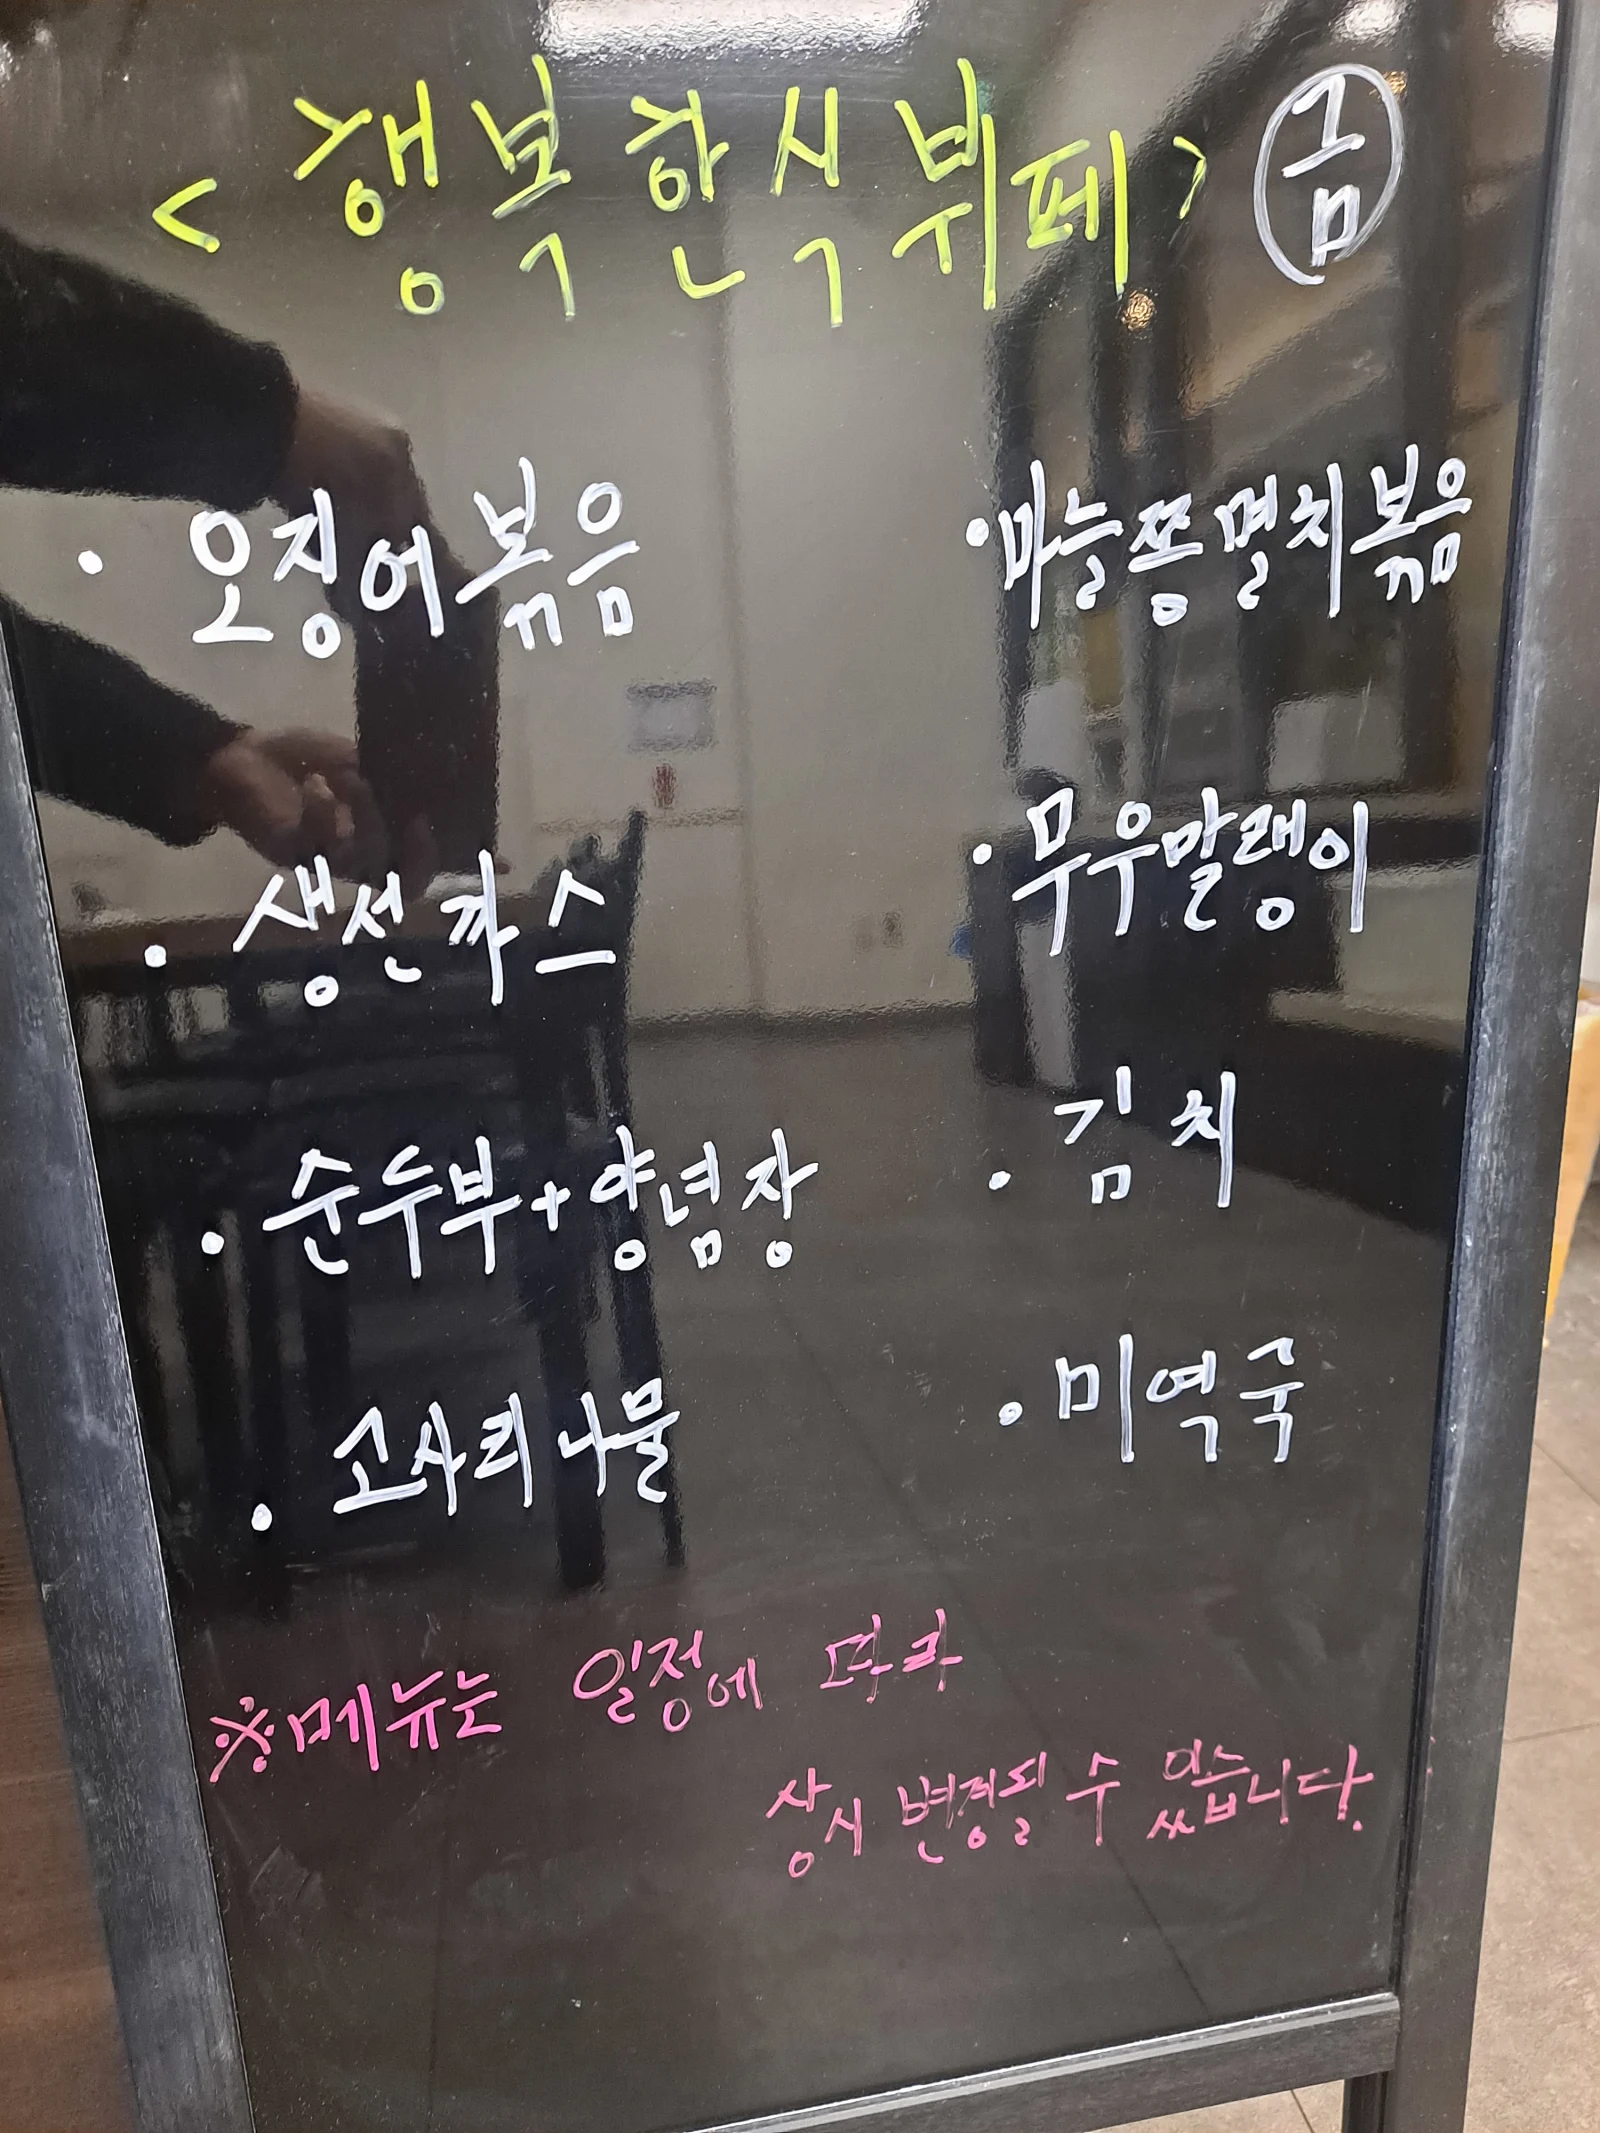 <행복한식뷔페> 금
· 오징어볶음
· 생선까스
· 순두부+양념장
· 고사리나물
· 마늘쫑멸치볶음
· 무우말랭이
· 김치
· 미역국
※메뉴는 일정에 따라
상시 변경될 수 있습니다.